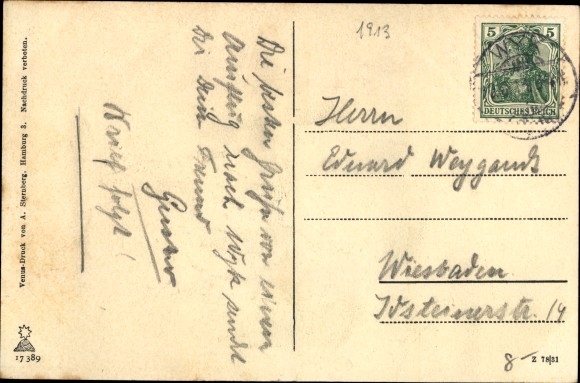 Venus-Druck von A. Sternberg, Hamburg 3. Nachdruck verboten.
17 389
Die besten Grüße von einem
Ausflug nach Wyk sendet
Dir Dein Freund
Gustav
Brief folgt!
1913
5 5
DEUTSCHES REICH
Herrn
Eduard Weygandt
Wiesbaden
Idsteinerstr. 14
8-
Z 7831